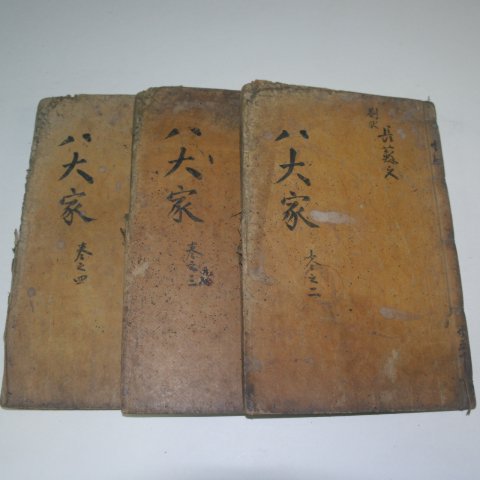 八大家
卷之四
八大家
卷之三
八大家
卷之二
長蘇文